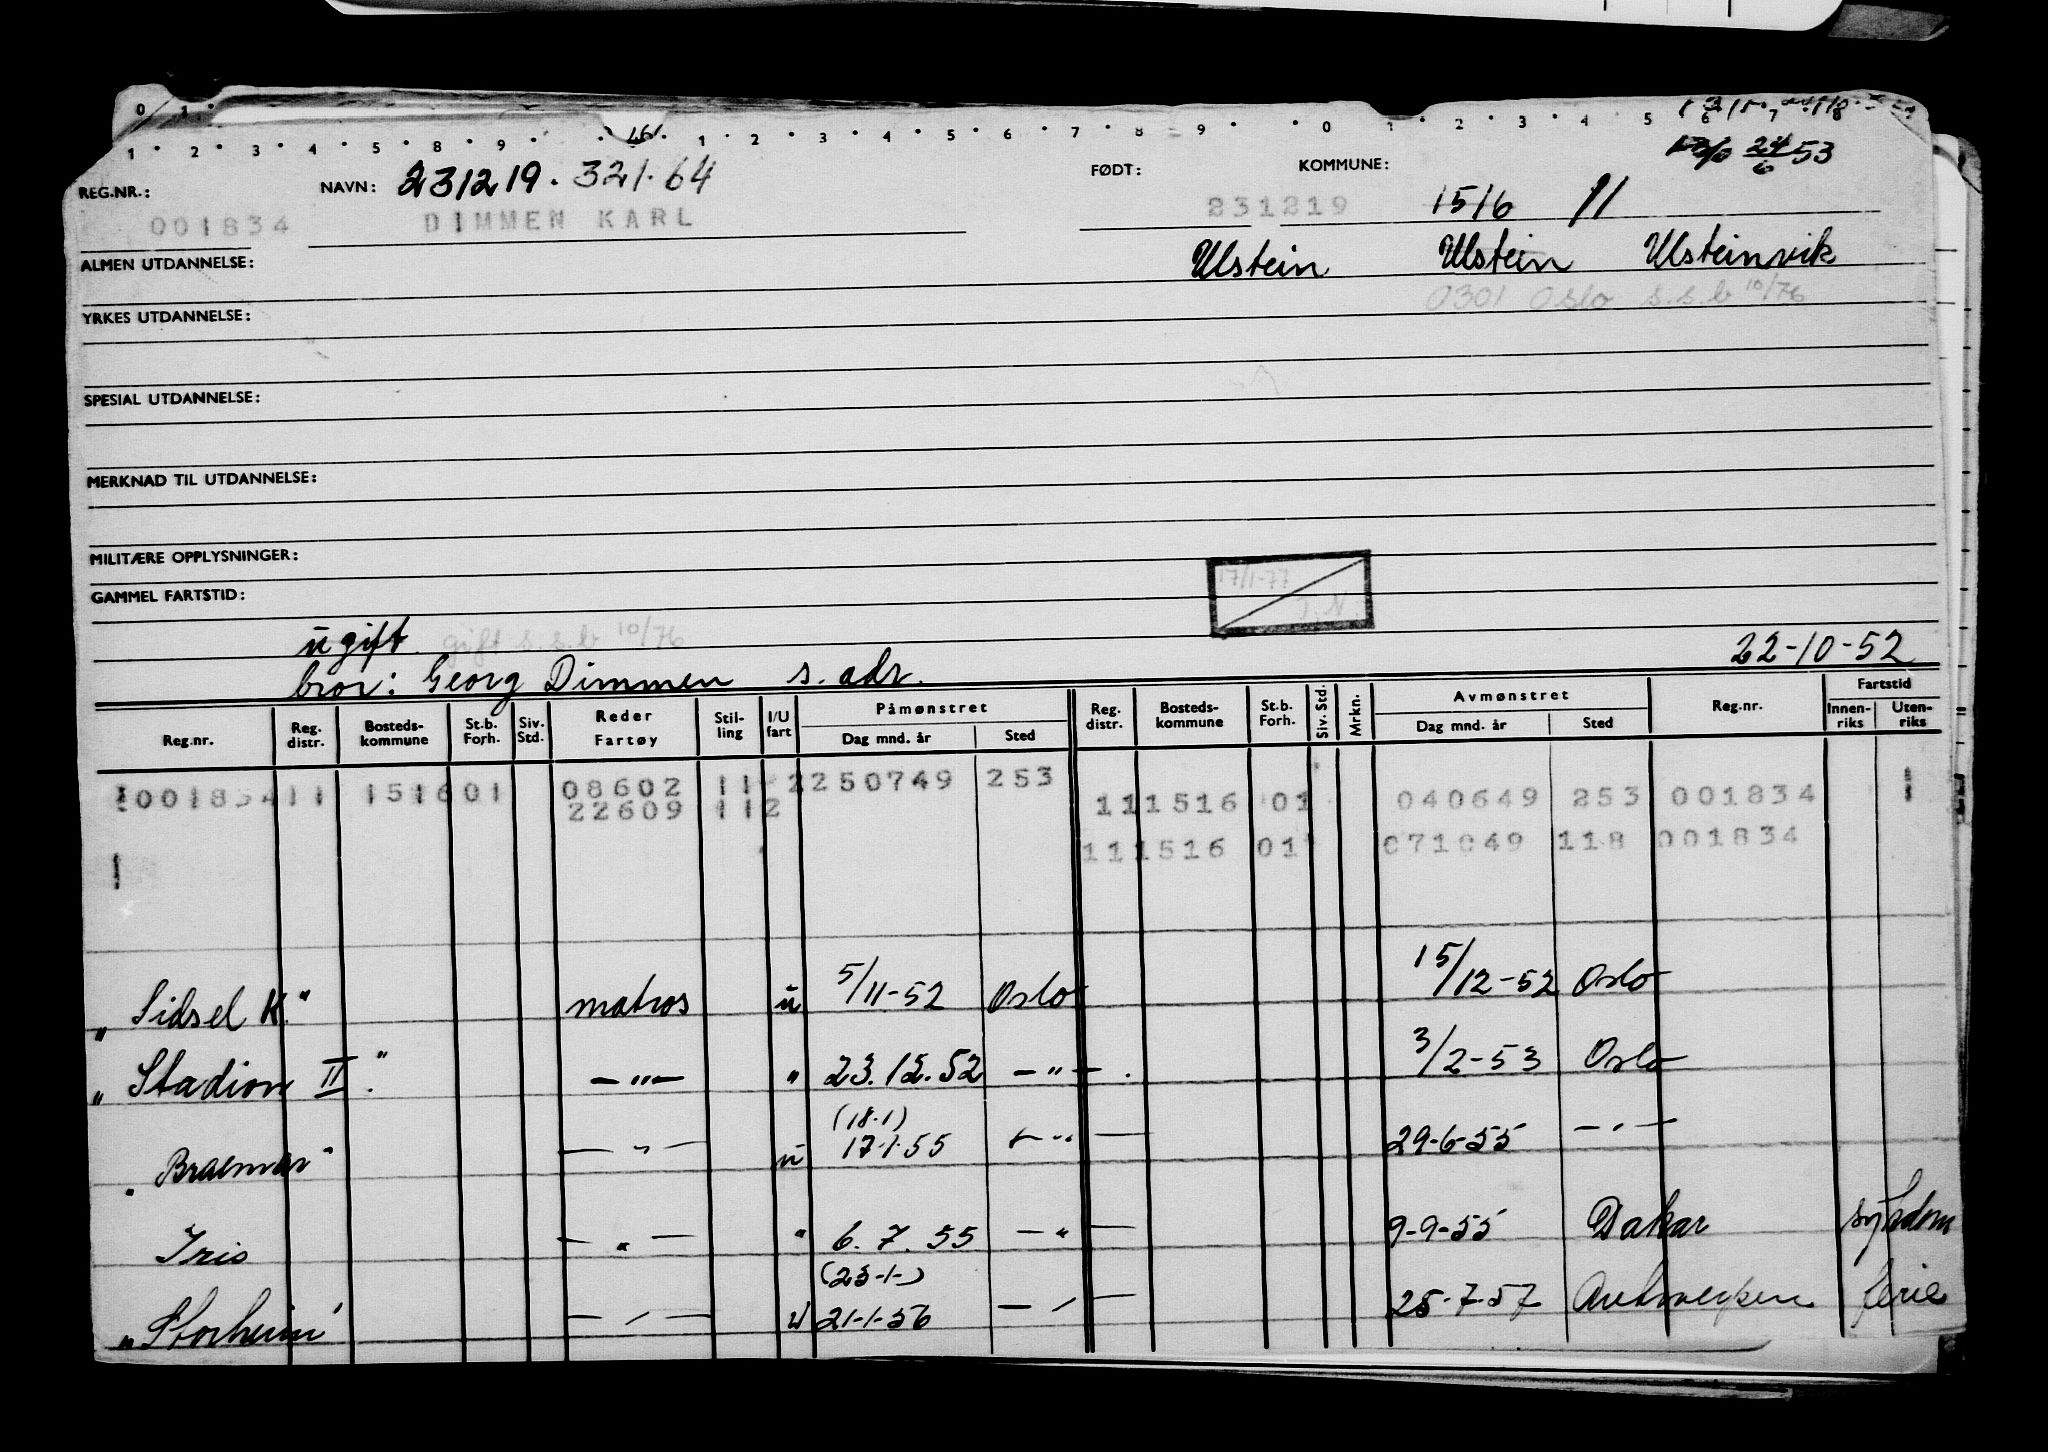 0 1
1 2 3 4 5 8 9 161. 1 2 3 4 5 6 7 8 9 0 1 2 3 4 5 6 7 8
24/6 53
REG.NR.: NAVN: 231219. 321.64 FØDT: KOMMUNE:
001834 DIMMEN KARL 231219 1516 11
ALMEN UTDANNELSE: Ulstein Ulstein Ulsteinvik
0301 Oslo s.s.b 10/76
YRKES UTDANNELSE:
SPESIAL UTDANNELSE:
MERKNAD TIL UTDANNELSE:
MILITÆRE OPPLYSNINGER:
GAMMEL FARTSTID: 17/1-77
J.N.
ugift. gift s.s.b 10/76
bror: Georg Dimmen s. adr. 22-10-52
Reg.nr. Reg. distr. Bosteds-kommune St.b. Forh. Siv. Std. Reder Fartøy Stil-ling I/U fart Påmønstret Dag mnd. år Sted Reg. distr. Bosteds-kommune St.b. Forh. Siv. Std. Mrkn. Avmønstret Dag mnd. år Sted Reg.nr. Fartstid Innen-riks Uten-riks
001834 11 1516 01 08602 11 2 250749 253
22609 11 2 11 1516 01 040649 253 001834 1
11 1516 01 071049 118 001834
„Sidsel K." matros u 5/11-52 Oslo 15/12-52 Oslo
„Stadion II." —"— " 23.12.52 —"—. 3/2-53 Oslo
(18.1)
„Braemar" —"— u 17.1.55 —"— 29-6-55 —"—
Iris —"— " 6.7.55 —"— 9-9-55 Dakar sykdom
(23-1-)
„Storheim" —"— u 21-1-56 —"— 25-7-57 Antwerpen ferie